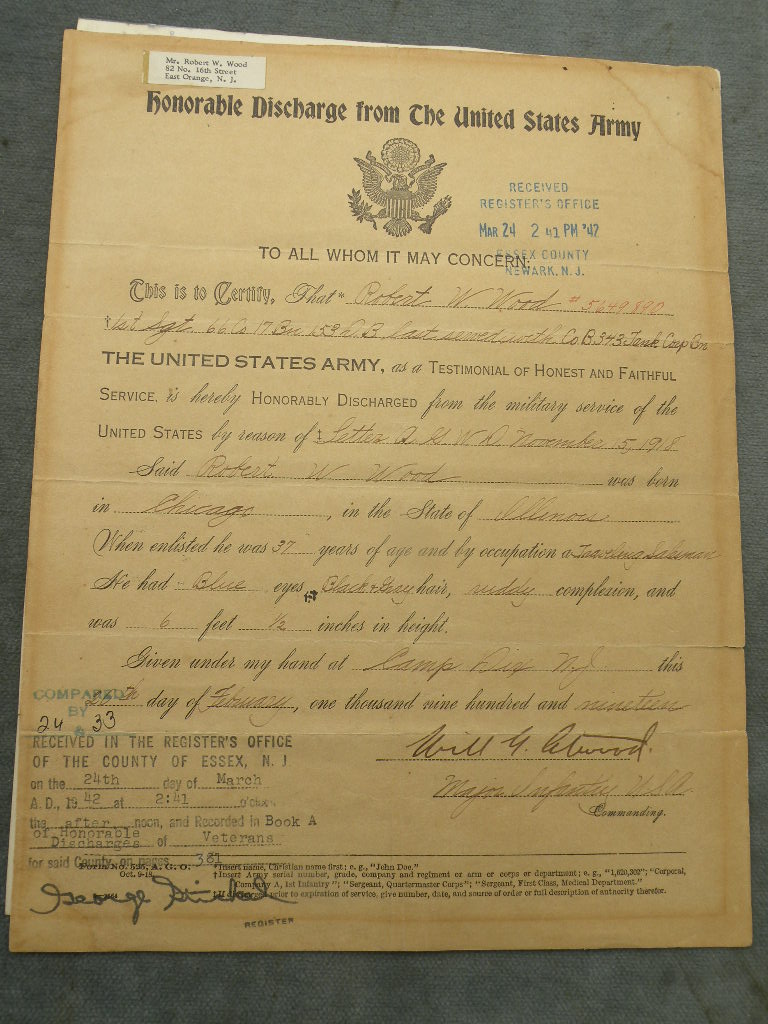 Mr. Robert W. Wood
82 No. 16th Street
East Orange, N. J.
Honorable Discharge from The United States Army
RECEIVED
REGISTER'S OFFICE
MAR 24 2 41 PM '42
ESSEX COUNTY
NEWARK, N. J.
TO ALL WHOM IT MAY CONCERN:
This is to Certify, That* Robert W. Wood # 5649890
†1st Sgt. 66 Co 17 Bn 153 D B last served with Co B 343 Tank Corp Bn
THE UNITED STATES ARMY, as a TESTIMONIAL OF HONEST AND FAITHFUL
SERVICE, is hereby HONORABLY DISCHARGED from the military service of the
UNITED STATES by reason of ‡ Letter A. G. W. D. November 15, 1918
Said Robert W Wood was born
in Chicago, in the State of Illinois
When enlisted he was 37 years of age and by occupation a Traveling Salesman
He had Blue eyes, Black & Gray hair, ruddy complexion, and
was 6 feet ½ inches in height.
Given under my hand at Camp Dix N.J. this
20th day of February, one thousand nine hundred and nineteen
COMPARED
BY
24 & 33
Will G. Atwood.
Major Infantry U.S.A.
Commanding.
RECEIVED IN THE REGISTER'S OFFICE
OF THE COUNTY OF ESSEX, N. J.
on the 24th day of March
A. D., 19 42 at 2:41 o'clock
the after noon, and Recorded in Book A
of Honorable Discharges of Veterans
for said County on pages 381
Form No. 525, A. G. O.
Oct. 9-18.
*Insert name, Christian name first; e. g., "John Doe."
†Insert Army serial number, grade, company and regiment or arm or corps or department; e. g., "1,620,302"; "Corporal,
Company A, 1st Infantry"; "Sergeant, Quartermaster Corps"; "Sergeant, First Class, Medical Department."
‡If discharged prior to expiration of service, give number, date, and source of order or full description of authority therefor.
George
REGISTER